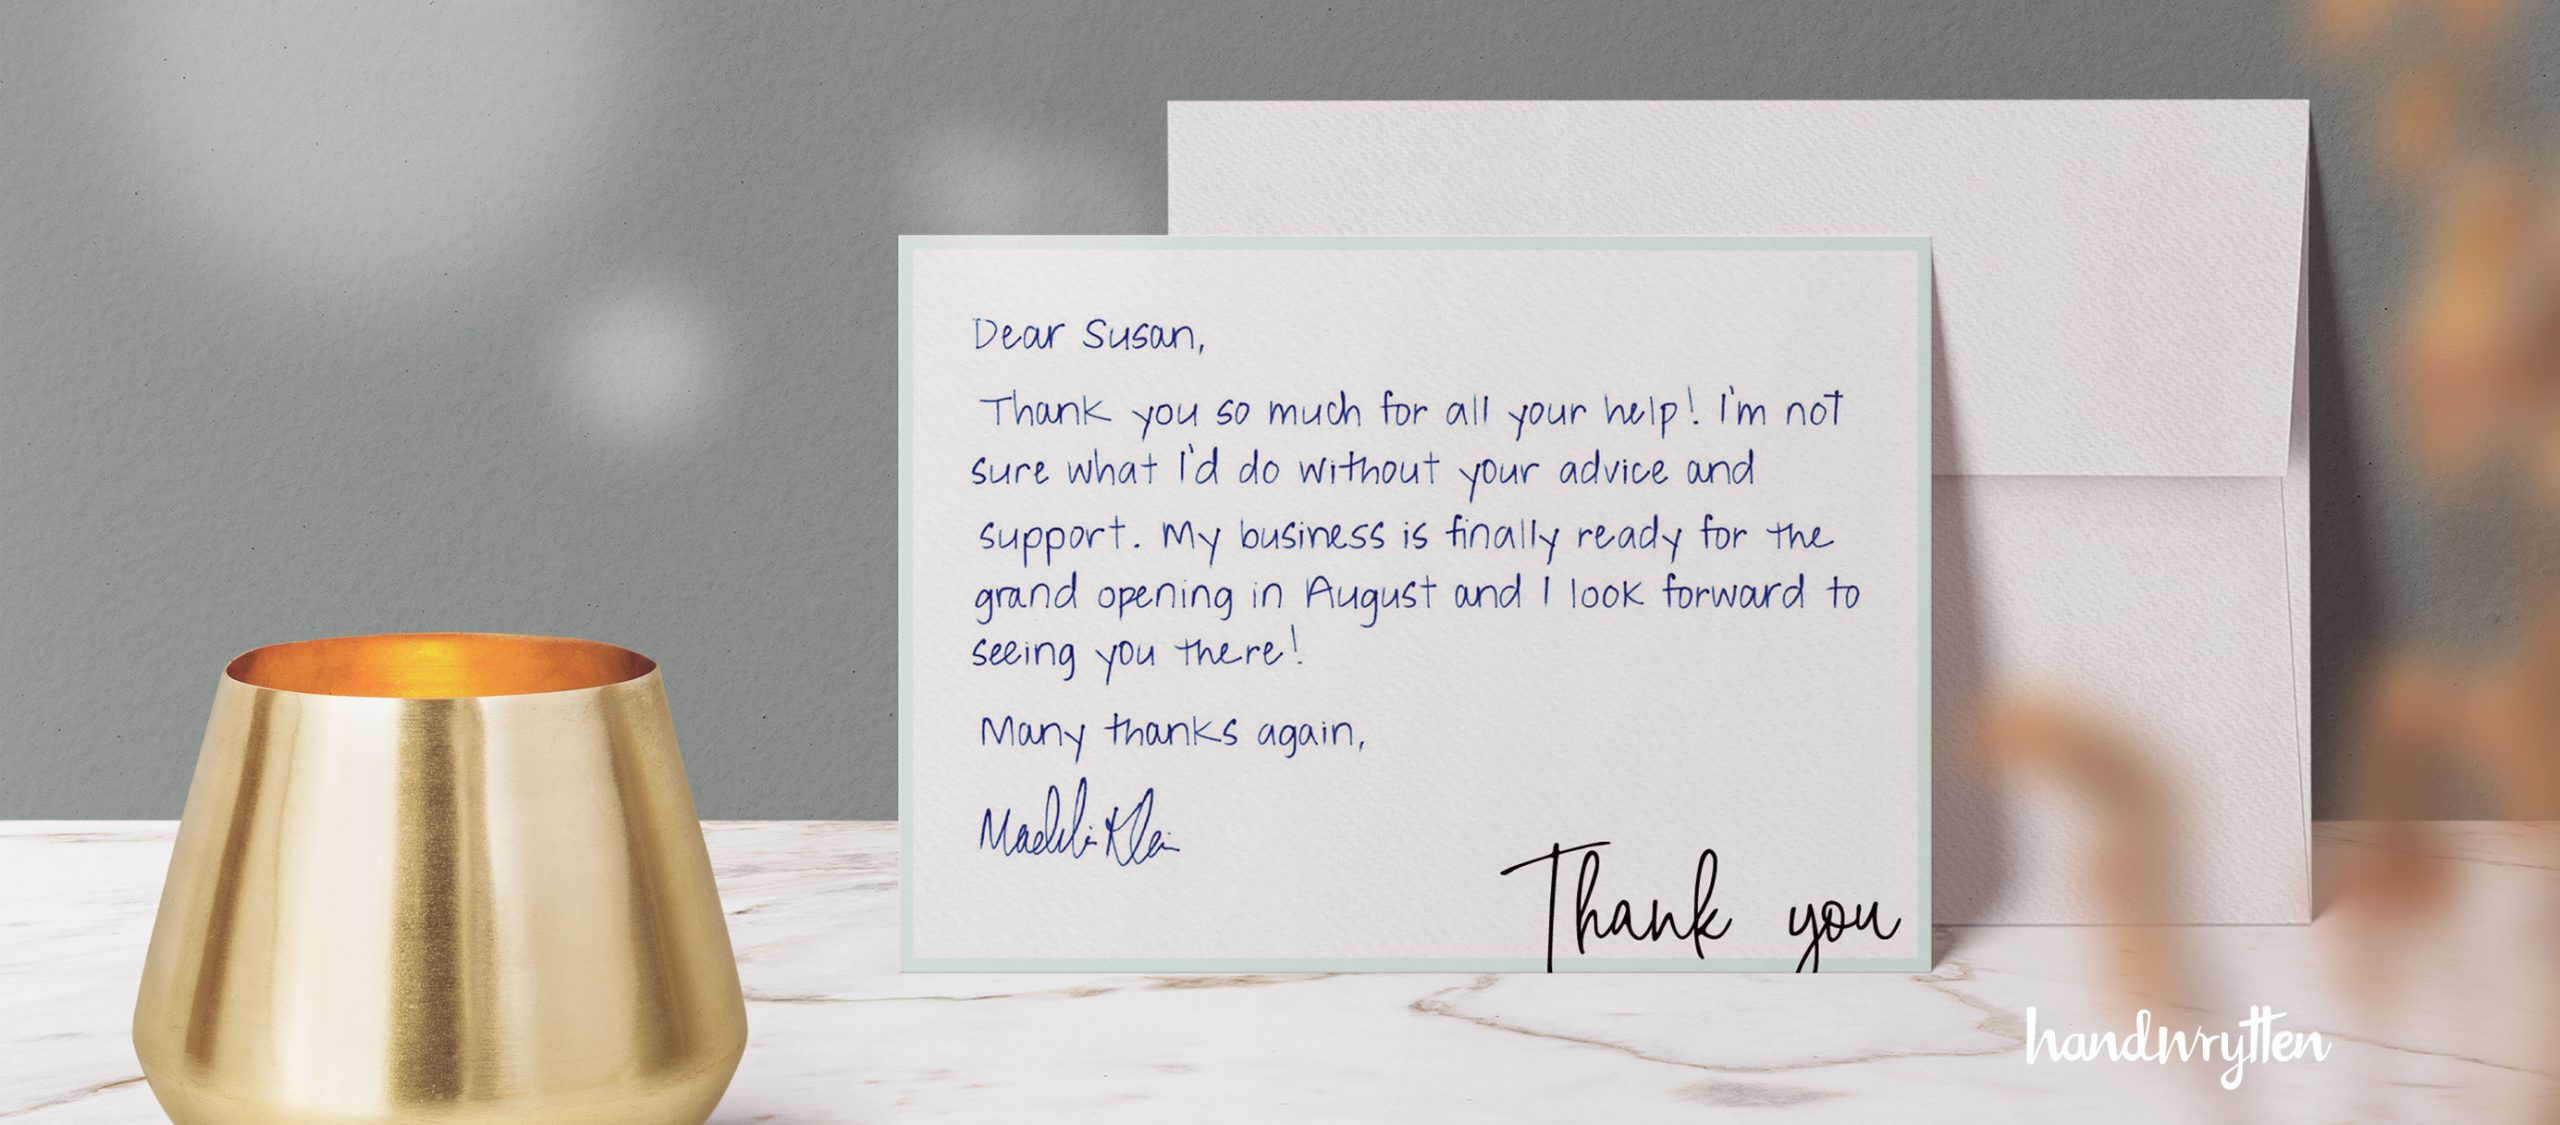 Dear Susan,
Thank you so much for all your help! I'm not
sure what I'd do without your advice and
support. My business is finally ready for the
grand opening in August and I look forward to
seeing you there!
Many thanks again,
Thank you
handwrytten